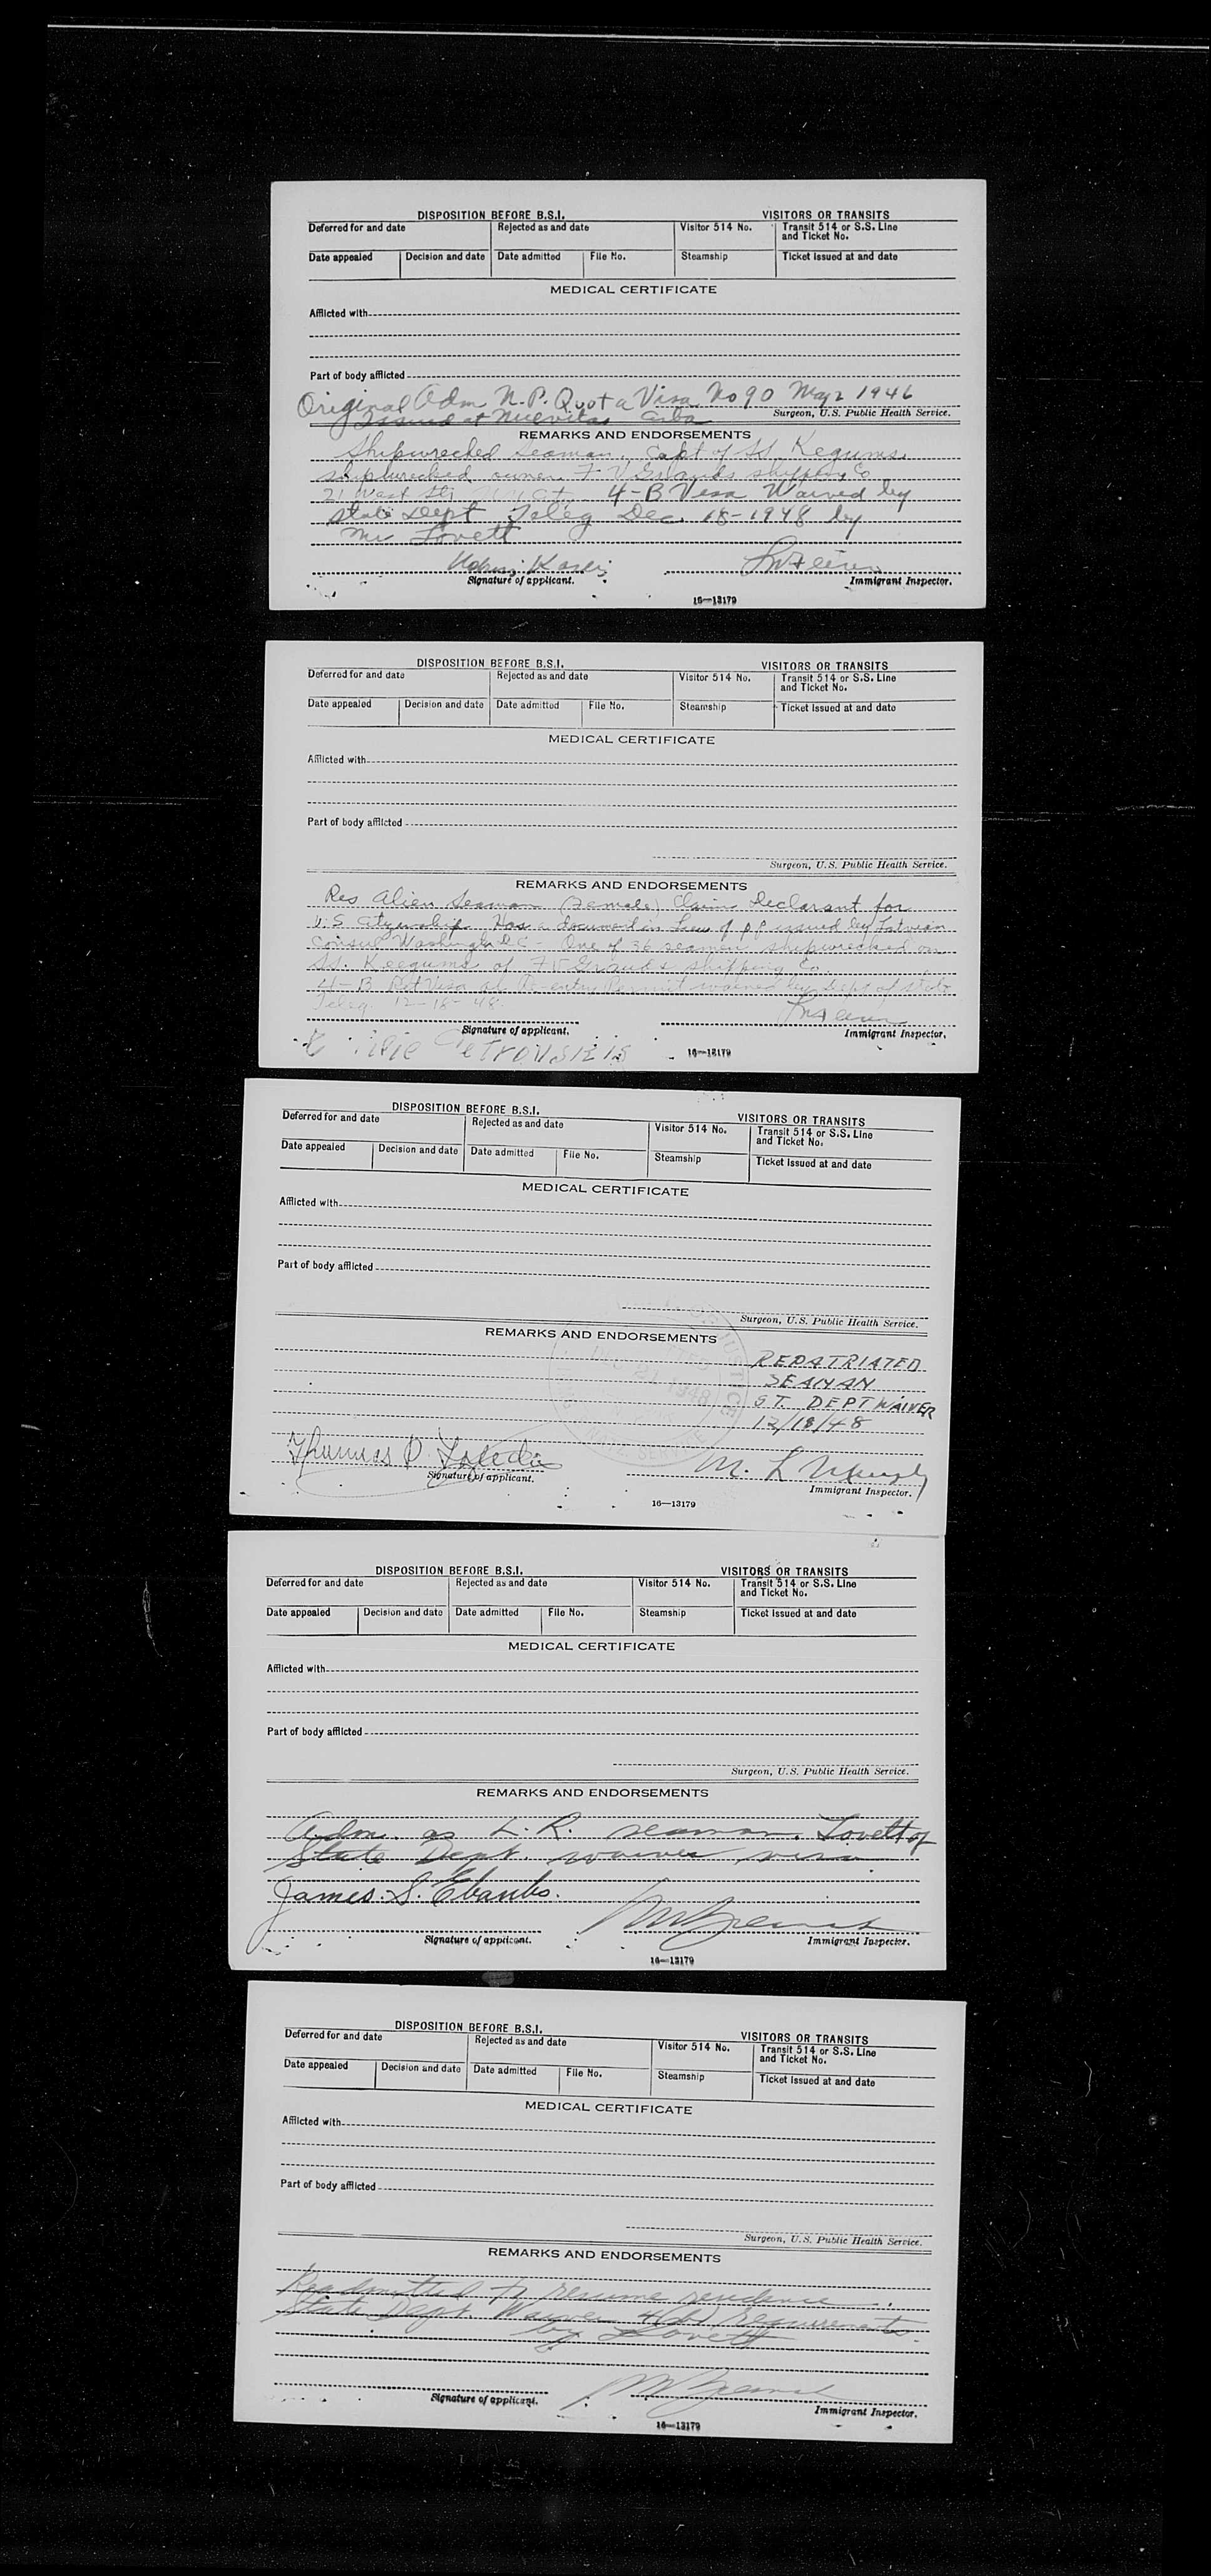 DISPOSITION BEFORE B.S.I. VISITORS OR TRANSITS
Deferred for and date Rejected as and date Visitor 514 No. Transit 514 or S.S. Line
and Ticket No.
Date appealed Decision and date Date admitted File No. Steamship Ticket issued at and date
MEDICAL CERTIFICATE
Afflicted with
Part of body afflicted
Original Adm N.P. Quota Visa No 90 May 2 1946
Surgeon, U.S. Public Health Service.
Issued at Nuevitas Cuba
REMARKS AND ENDORSEMENTS
Shipwrecked Seaman. Capt of SS. Kegums
shipwrecked owner F. V Grauds shipping Co
21 West St; 4-B Visa Waived by
State Dept Teleg Dec. 18-1948 by
Mr Lovett
Signature of applicant. Immigrant Inspector.
16—13179
DISPOSITION BEFORE B.S.I. VISITORS OR TRANSITS
Deferred for and date Rejected as and date Visitor 514 No. Transit 514 or S.S. Line
and Ticket No.
Date appealed Decision and date Date admitted File No. Steamship Ticket issued at and date
MEDICAL CERTIFICATE
Afflicted with
Part of body afflicted
Surgeon, U.S. Public Health Service.
REMARKS AND ENDORSEMENTS
Res Alien Seaman (Female) Claims Declarant for
U.S. Citizenship. Has a document in Lieu of pp issued by Latvian
Consul Washington DC - One of 36 seamen shipwrecked on
SS. Keegums of F V Grauds shipping Co.
4-B Ret Visa or Re-entry Permit waived by Dept of State
Teleg. 12-18-48.
Signature of applicant. Immigrant Inspector.
16—13179
DISPOSITION BEFORE B.S.I. VISITORS OR TRANSITS
Deferred for and date Rejected as and date Visitor 514 No. Transit 514 or S.S. Line
and Ticket No.
Date appealed Decision and date Date admitted File No. Steamship Ticket issued at and date
MEDICAL CERTIFICATE
Afflicted with
Part of body afflicted
Surgeon, U.S. Public Health Service.
REMARKS AND ENDORSEMENTS
REPATRIATED
SEAMAN
ST. DEPT WAIVER
12/18/48
Thomas
Signature of applicant. M. L Murphy
Immigrant Inspector.
16—13179
DISPOSITION BEFORE B.S.I. VISITORS OR TRANSITS
Deferred for and date Rejected as and date Visitor 514 No. Transit 514 or S.S. Line
and Ticket No.
Date appealed Decision and date Date admitted File No. Steamship Ticket issued at and date
MEDICAL CERTIFICATE
Afflicted with
Part of body afflicted
Surgeon, U.S. Public Health Service.
REMARKS AND ENDORSEMENTS
Adm. as L. R. seaman. Lovett of
State Dept. waives visa
James. S. Ebanks.
Signature of applicant. Immigrant Inspector.
16—13179
DISPOSITION BEFORE B.S.I. VISITORS OR TRANSITS
Deferred for and date Rejected as and date Visitor 514 No. Transit 514 or S.S. Line
and Ticket No.
Date appealed Decision and date Date admitted File No. Steamship Ticket issued at and date
MEDICAL CERTIFICATE
Afflicted with
Part of body afflicted
Surgeon, U.S. Public Health Service.
REMARKS AND ENDORSEMENTS
Readmitted to resume residence.
State Dept Waives 4(b) requirements.
by Lovett
Signature of applicant. Immigrant Inspector.
16—13179